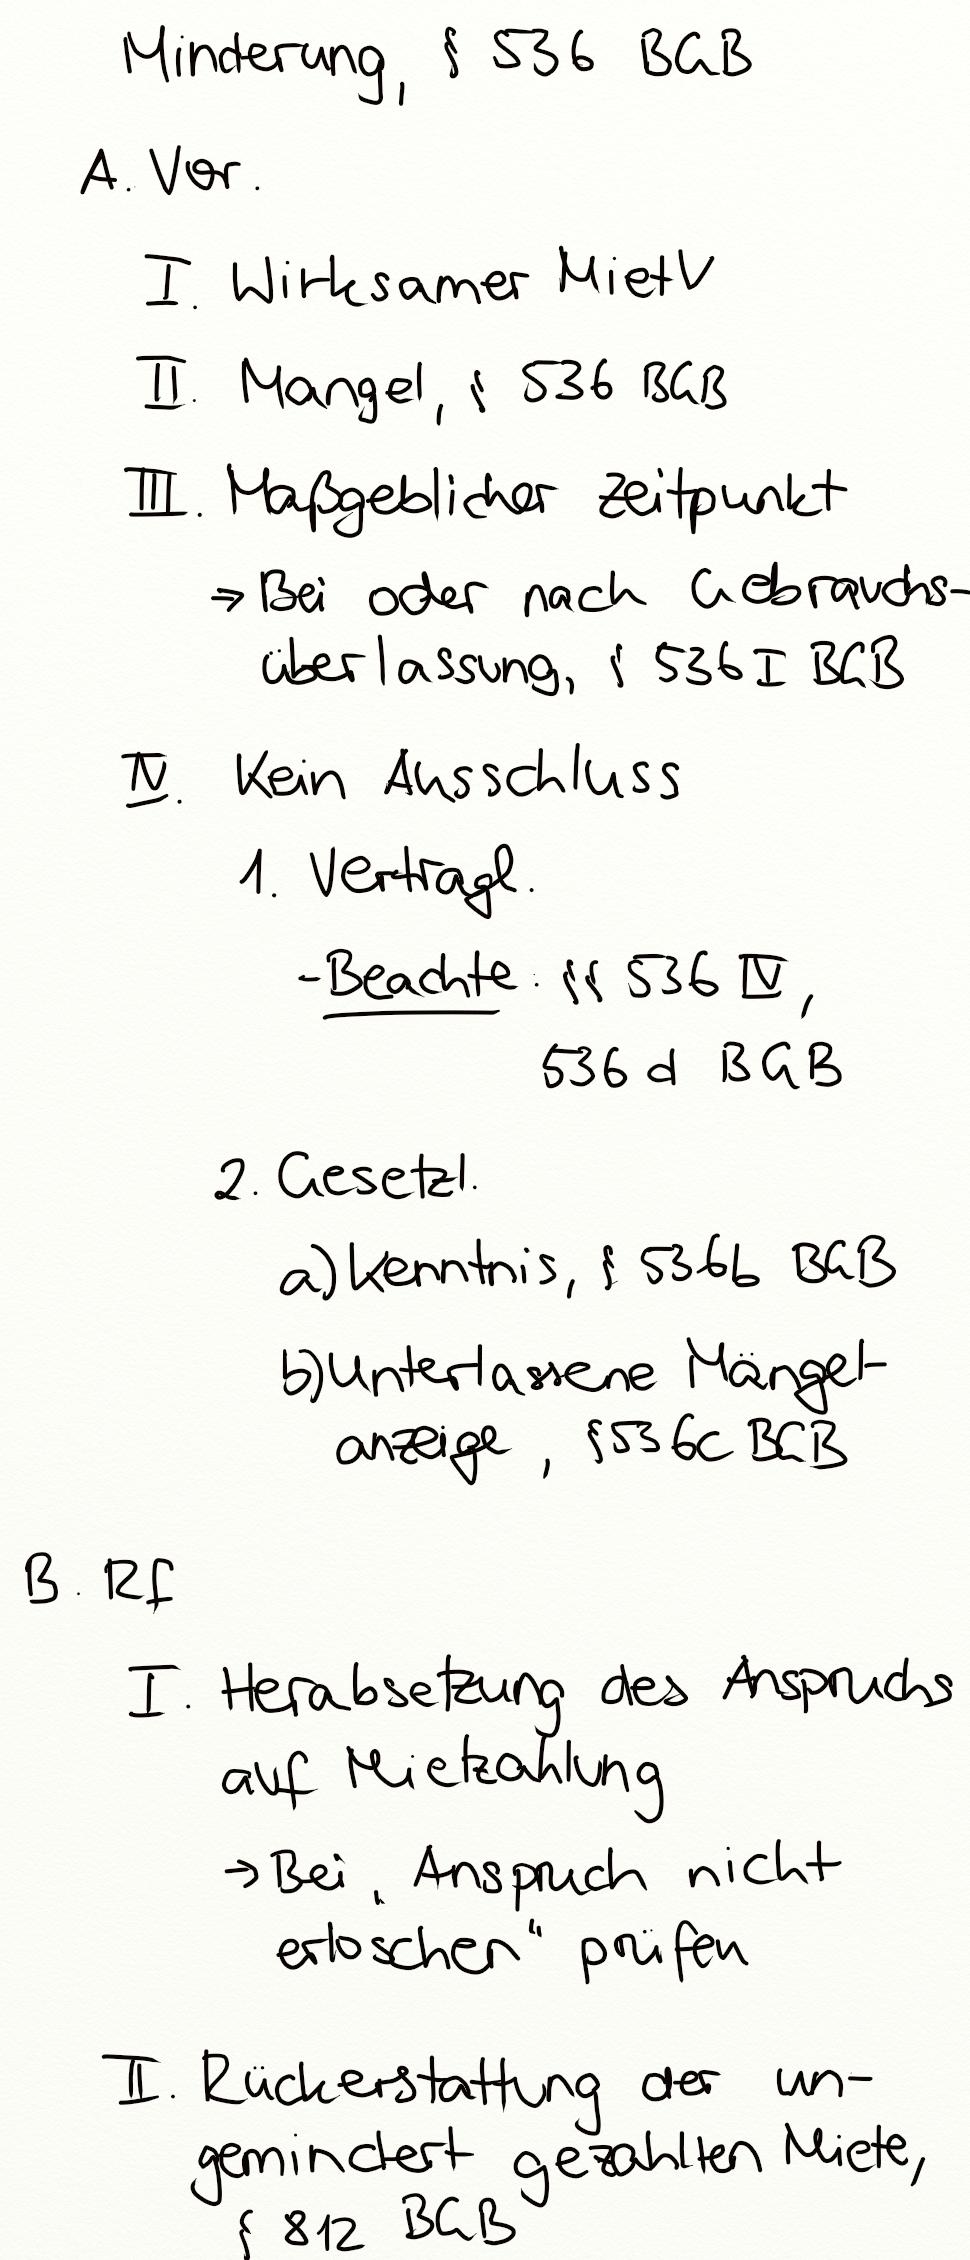 Minderung, § 536 BGB
A. Vor.
I. Wirksamer MietV
II. Mangel, § 536 BGB
III. Maßgeblicher Zeitpunkt
→ Bei oder nach Gebrauchs-
überlassung, § 536 I BGB
IV. Kein Ausschluss
1. Vertragl.
- Beachte: §§ 536 IV,
536 d BGB
2. Gesetzl.
a) Kenntnis, § 536b BGB
b) Unterlassene Mängel-
anzeige, § 536c BGB
B. Rf
I. Herabsetzung des Anspruchs
auf Mietzahlung
→ Bei „Anspruch nicht
erloschen“ prüfen
II. Rückerstattung der un-
gemindert gezahlten Miete,
§ 812 BGB